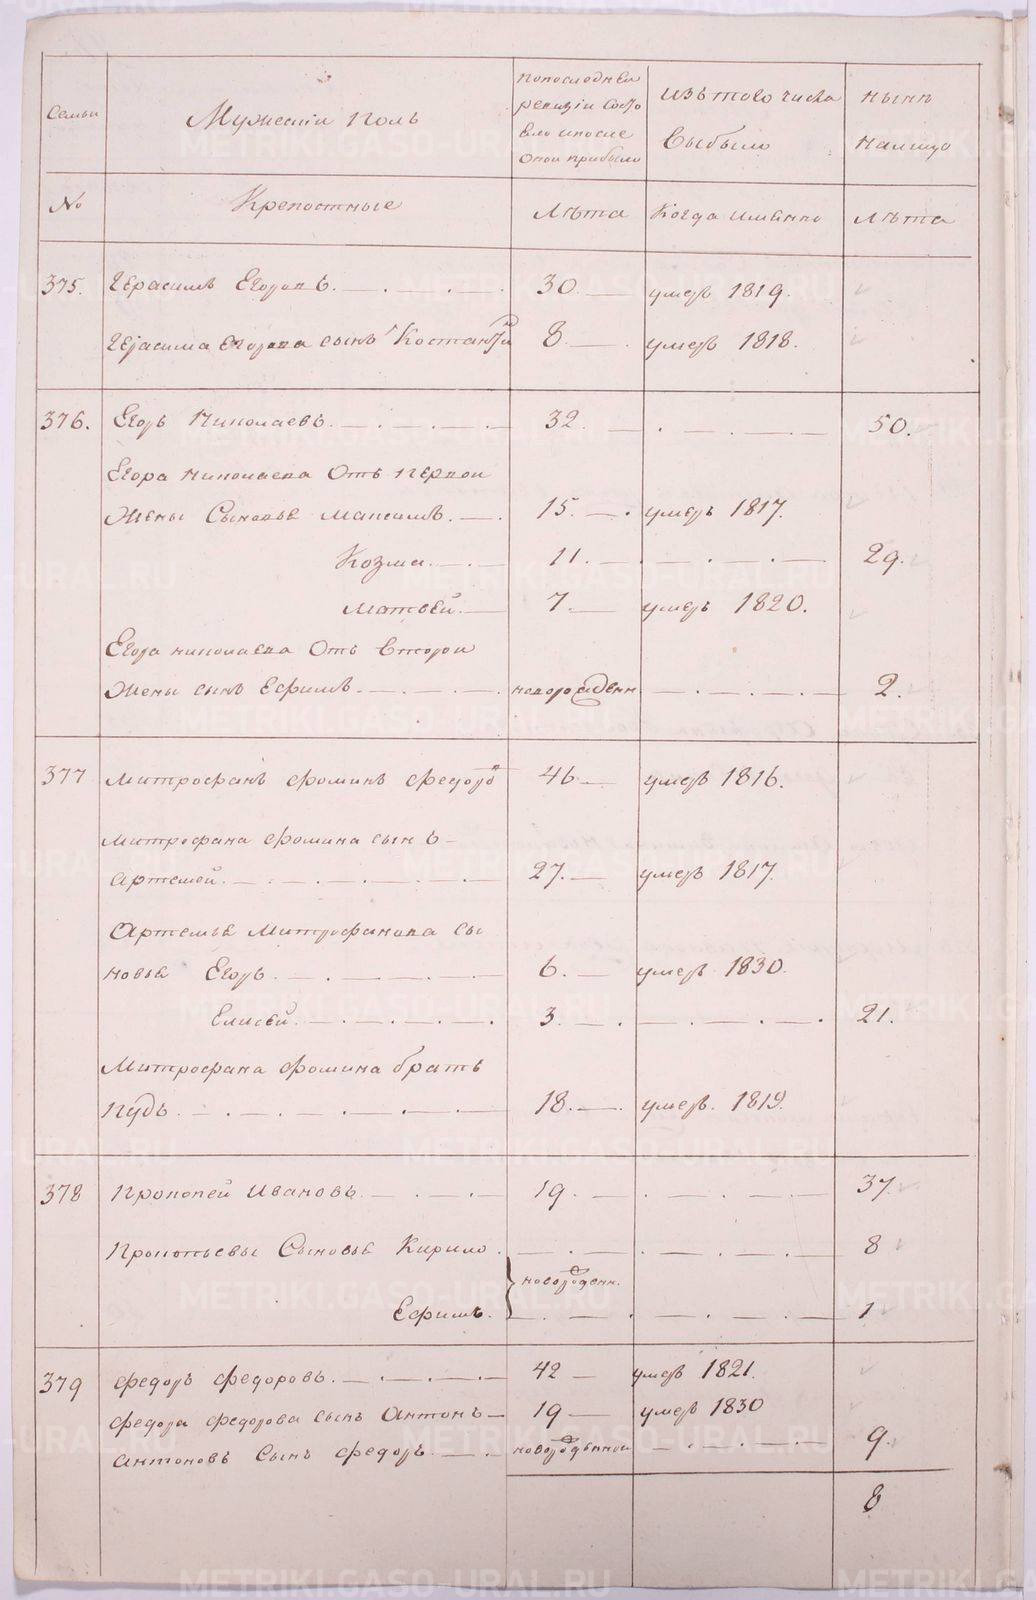 Семьи
Мужескiй полъ
по последней
ревизiи состо
яло и после
оной прибыло
Изъ того числа
выбыло
ныне
налицо
№
Крепостные
Лѣта
Когда именно
Лѣта
375. Герасимъ Егоровъ. 30. умеръ 1819.
Герасима Егорова сынъ Костантiн 8. умеръ 1818.
376. Егоръ Николаевъ. 32. 50.
Егора Николаева отъ первой
жены Сыновье Максимъ. 15. умеръ 1817.
Козма. 11. 29.
Матвей. 7. умеръ 1820.
Егора Николаева отъ второй
жены сынъ Ефимъ. новорожденн 2.
377 Митрофанъ Фоминъ Федоровъ 46 умеръ 1816.
Митрофана Фомина сынъ
Артемей. 27. умеръ 1817.
Артемья Митрофанова сы
новья Егоръ. 6. умеръ 1830.
Елисей. 3. 21.
Митрофана Фомина братъ
Пудъ. 18. умеръ. 1819.
378 Прокопей Ивановъ. 19. 37.
Прокопьевы Сыновье Кирило. 8
новорожденн.
Ефимъ. 1
379 Федоръ Федоровъ. 42 умеръ 1821.
Федора Федорова сынъ Антонъ 19 умеръ 1830
Антоновъ Сынъ Федоръ. новорожденной 9.
8
METRIKI.GASO-URAL.RU